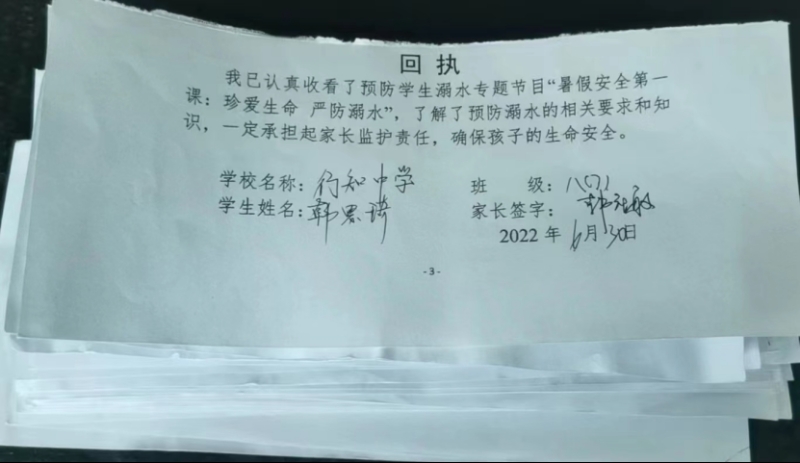 回 执
我已认真收看了预防学生溺水专题节目“暑假安全第一
课：珍爱生命 严防溺水”，了解了预防溺水的相关要求和知
识，一定承担起家长监护责任，确保孩子的生命安全。
学校名称：行知中学 班 级：八(7)
学生姓名：韩思琦 家长签字：
2022 年 6月30日
-3-